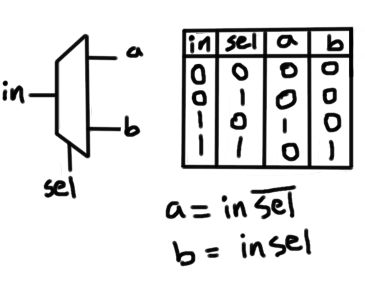 a
in
b
sel
in sel a b
0 0 0 0
0 1 0 0
1 0 1 0
1 1 0 1
a = in s̅e̅l̅
b = in sel